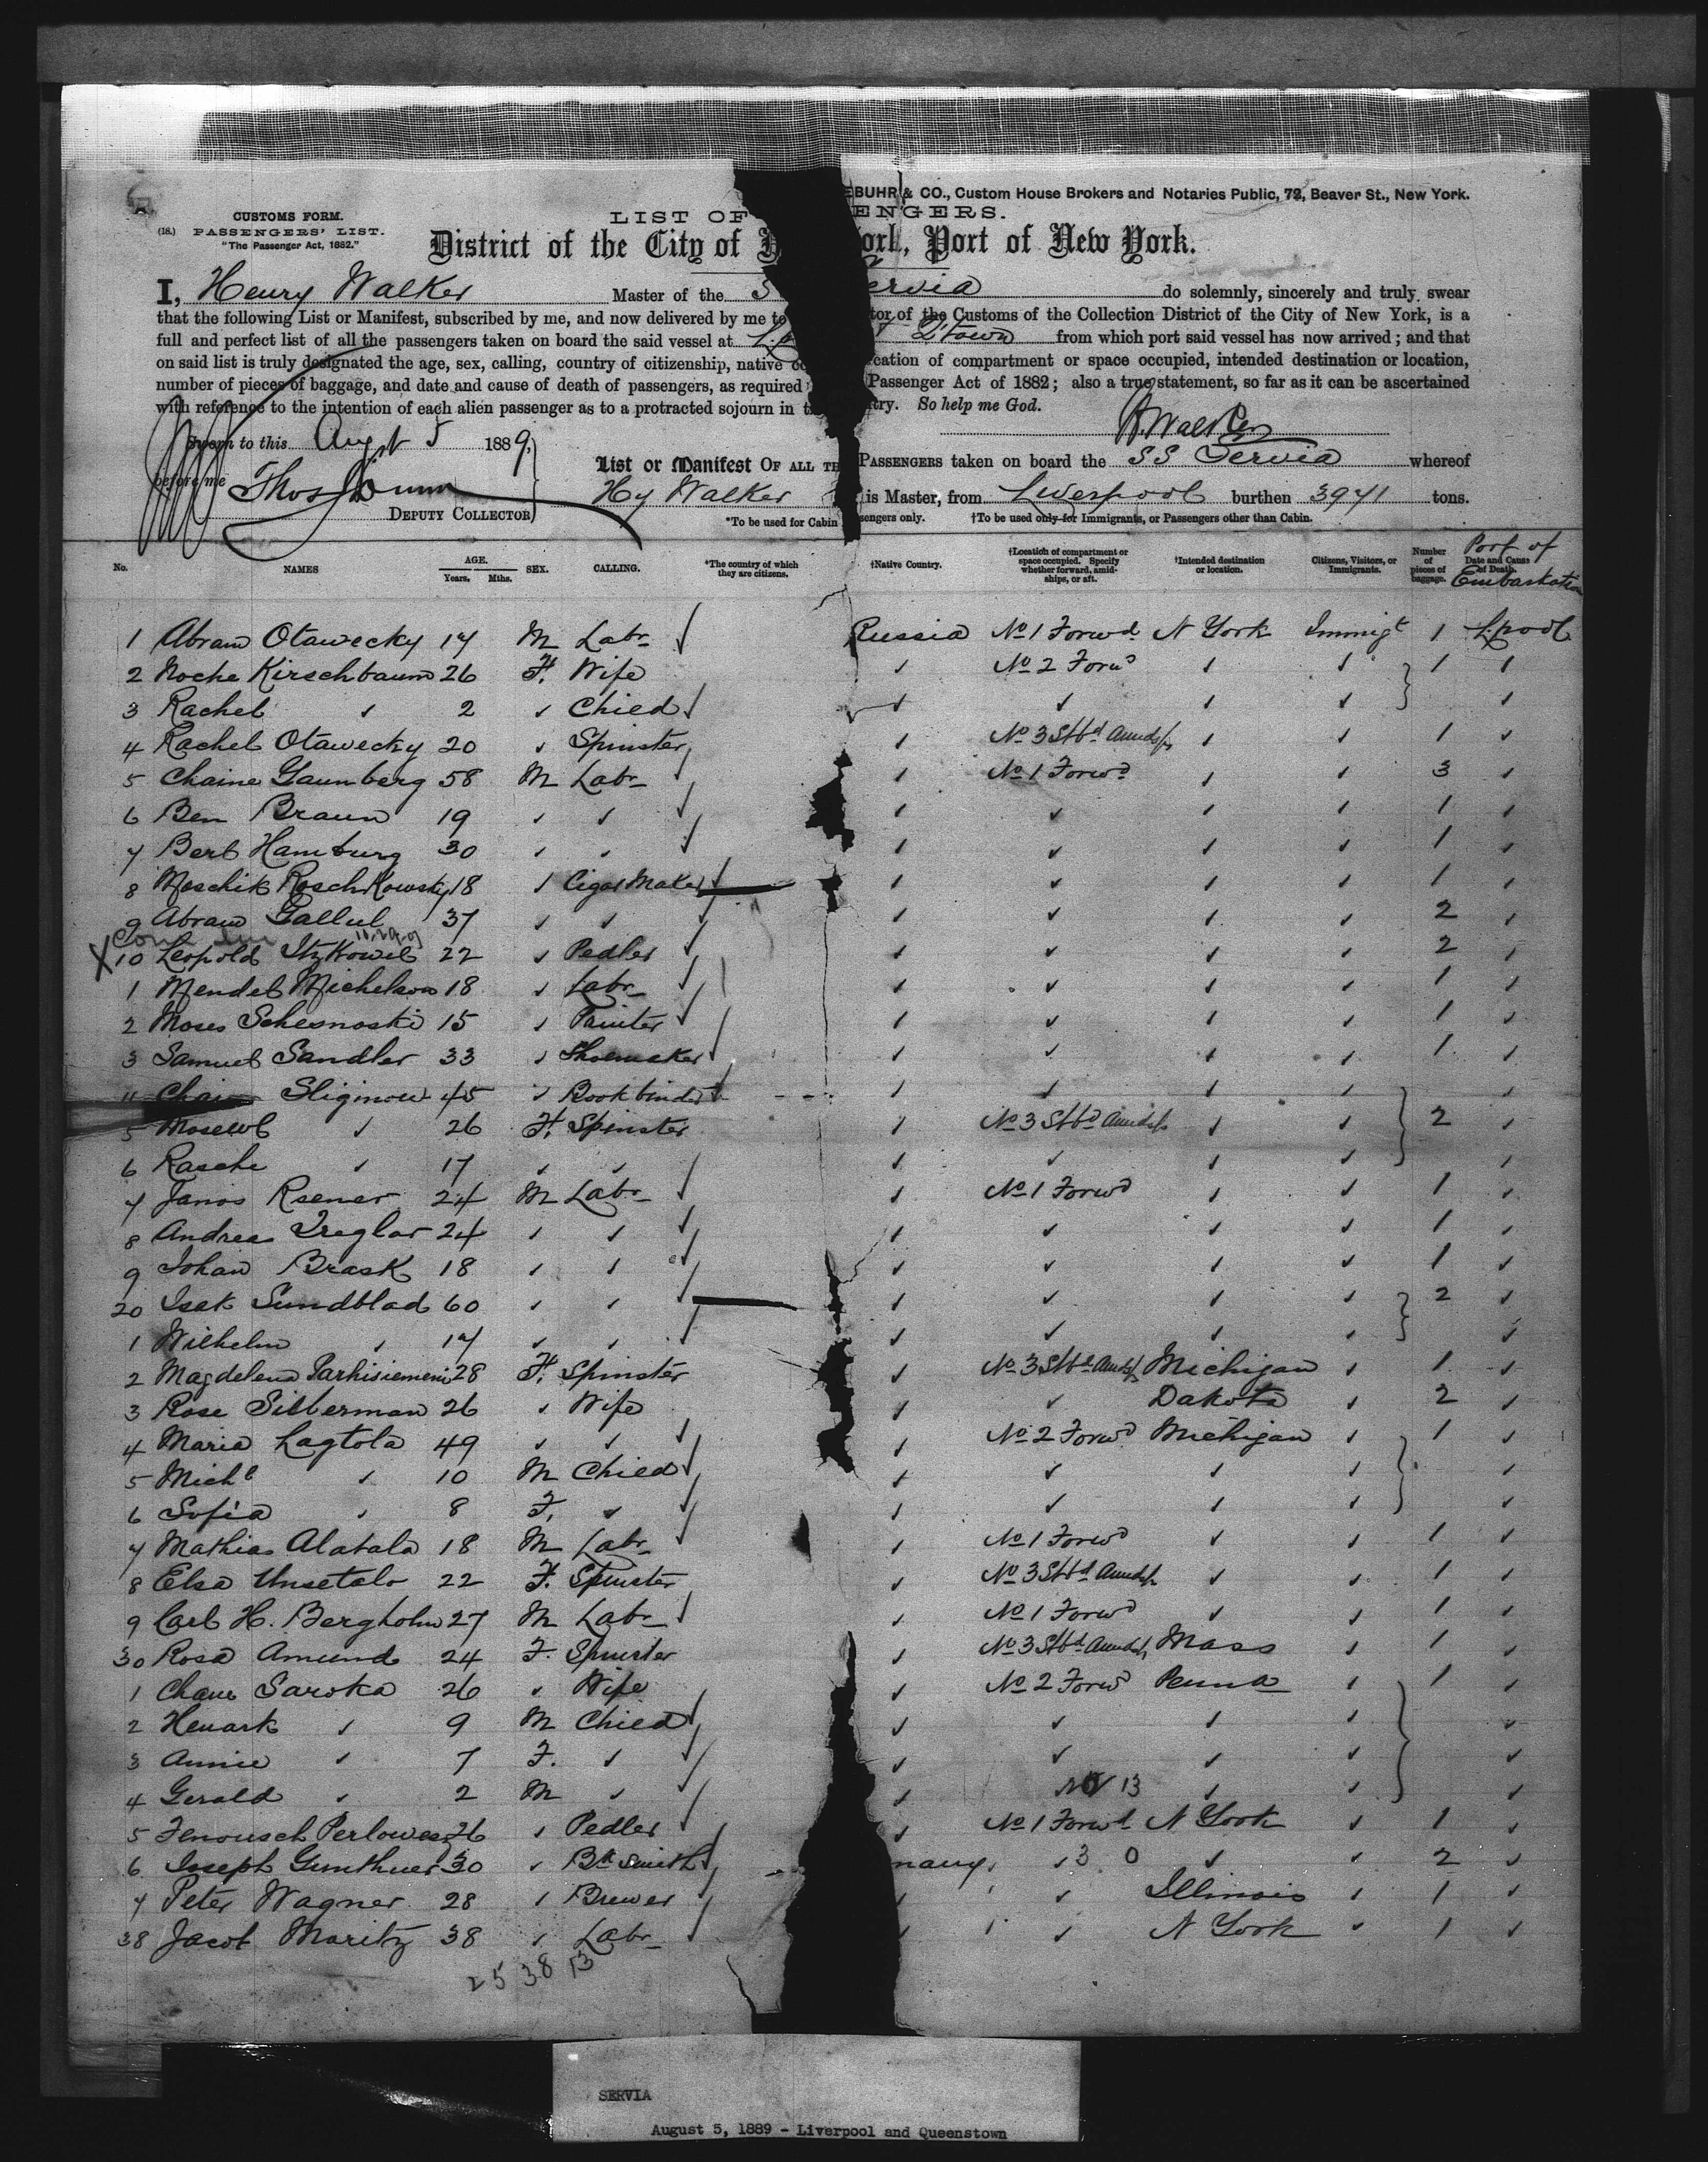 EBUHR & CO., Custom House Brokers and Notaries Public, 72, Beaver St., New York.
CUSTOMS FORM.
(18.) PASSENGERS' LIST.
"The Passenger Act, 1882."
LIST OF ENGERS.
District of the City of ork, Port of New York.
I, Henry Walker Master of the S ervia do solemnly, sincerely and truly swear
that the following List or Manifest, subscribed by me, and now delivered by me to tor of the Customs of the Collection District of the City of New York, is a
full and perfect list of all the passengers taken on board the said vessel at Q'town from which port said vessel has now arrived; and that
on said list is truly designated the age, sex, calling, country of citizenship, native cation of compartment or space occupied, intended destination or location,
number of pieces of baggage, and date and cause of death of passengers, as required Passenger Act of 1882; also a true statement, so far as it can be ascertained
with reference to the intention of each alien passenger as to a protracted sojourn in try. So help me God.
H. Walker
Sworn to this Augst 5 1889,
before me Thos Dunn
DEPUTY COLLECTOR
List or Manifest OF ALL THE PASSENGERS taken on board the SS Servia whereof
Hy Walker is Master, from Liverpool burthen 3941 tons.
*To be used for Cabin sengers only. †To be used only for Immigrants, or Passengers other than Cabin.
No. NAMES AGE. Years. Mths. SEX. CALLING. *The country of which they are citizens. †Native Country. †Location of compartment or space occupied. Specify whether forward, amidships, or aft. †Intended destination or location. Citizens, Visitors, or Immigrants. Number of pieces of baggage. Date and Cause of Death. Port of Embarkation
1 Abram Otawecky 17 M Labr Russia No 1 Forwd N York Immigt 1 Lpool
2 Noche Kirschbaum 26 F. Wife ✓ No 2 Forwd ✓ ✓ 1 ✓
3 Rachel ✓ 2 ✓ Child ✓ ✓ ✓ ✓ ✓
4 Rachel Otawecky 20 ✓ Spinster ✓ No 3 Stbd Amidsps ✓ ✓ 1 ✓
5 Chaine Gaumberg 58 M Labr ✓ No 1 Forwd ✓ ✓ 3 ✓
6 Ben Braun 19 ✓ ✓ ✓ ✓ ✓ ✓ 1 ✓
7 Berl Hamburg 30 ✓ ✓ ✓ ✓ ✓ ✓ 1 ✓
8 Moschik Roschkowsky 18 ✓ Cigar Maker ✓ ✓ ✓ ✓ 1 ✓
9 Abram Gallul 37 ✓ ✓ ✓ ✓ ✓ ✓ 2 ✓
X 10 Leopold Itzkowil 22 ✓ Pedler ✓ ✓ ✓ ✓ 2 ✓
1 Mendel Michelson 18 ✓ Labr ✓ ✓ ✓ ✓ 1 ✓
2 Moses Schesnoski 15 ✓ Painter ✓ ✓ ✓ ✓ 1 ✓
3 Samuel Sandler 33 ✓ Shoemaker ✓ ✓ ✓ ✓ 1 ✓
4 Chaim Sliginow 45 ✓ Bookbinder ✓ ✓ ✓ ✓ ✓
5 26 F. Spinster ✓ No 3 Stbd Amidsps ✓ ✓ 2 ✓
6 Rasche ✓ 17 ✓ ✓ ✓ ✓ ✓ ✓ ✓
7 Janos Rsener 24 M Labr ✓ No 1 Forwd ✓ ✓ 1 ✓
8 Andreas Treglar 24 ✓ ✓ ✓ ✓ ✓ ✓ 1 ✓
9 Johan Brask 18 ✓ ✓ ✓ ✓ ✓ ✓ 1 ✓
20 Isak Sundblad 60 ✓ ✓ ✓ ✓ ✓ ✓ 2 ✓
1 Wilhelm ✓ 17 ✓ ✓ ✓ ✓ ✓ ✓ ✓
2 Magdelena Parhisiemeni 28 F. Spinster ✓ No 3 Stbd Amdsp Michigan ✓ 1 ✓
3 Rose Silberman 26 ✓ Wife ✓ ✓ Dakota ✓ 2 ✓
4 Maria Lagtola 49 ✓ ✓ ✓ No 2 Forwd Michigan ✓ 1 ✓
5 Michl ✓ 10 M Child ✓ ✓ ✓ ✓ ✓
6 Sofia ✓ 8 F. ✓ ✓ ✓ ✓ ✓ ✓
7 Mathias Alatala 18 M Labr ✓ No 1 Forwd ✓ ✓ 1 ✓
8 Elsa Unsetalo 22 F. Spinster ✓ No 3 Stbd Amidsp ✓ ✓ 1 ✓
9 Carl H. Bergholm 27 M Labr ✓ No 1 Forwd ✓ ✓ 1 ✓
30 Rosa Amund 24 F. Spinster ✓ No 3 Stbd Amidsp Mass ✓ 1 ✓
1 Chane Saroka 26 ✓ Wife ✓ No 2 Forwd Penna ✓ 1 ✓
2 Henark ✓ 9 M Child ✓ ✓ ✓ ✓ ✓
3 Annie ✓ 7 F. ✓ ✓ ✓ ✓ ✓ ✓
4 Gerald ✓ 2 M ✓ ✓ 13 ✓ ✓ ✓
5 Perlowesz 26 ✓ Pedler ✓ No 1 Forwd N York ✓ 1 ✓
6 Joseph Gunthner 30 ✓ Bk Smith many. ✓ 3 0 ✓ ✓ 2 ✓
7 Peter Wagner 28 ✓ Brewer ✓ ✓ Illinois ✓ 1 ✓
38 Jacob Moritz 38 ✓ Labr ✓ ✓ N York ✓ 1 ✓
25 38 13
SERVIA
August 5, 1889 - Liverpool and Queenstown